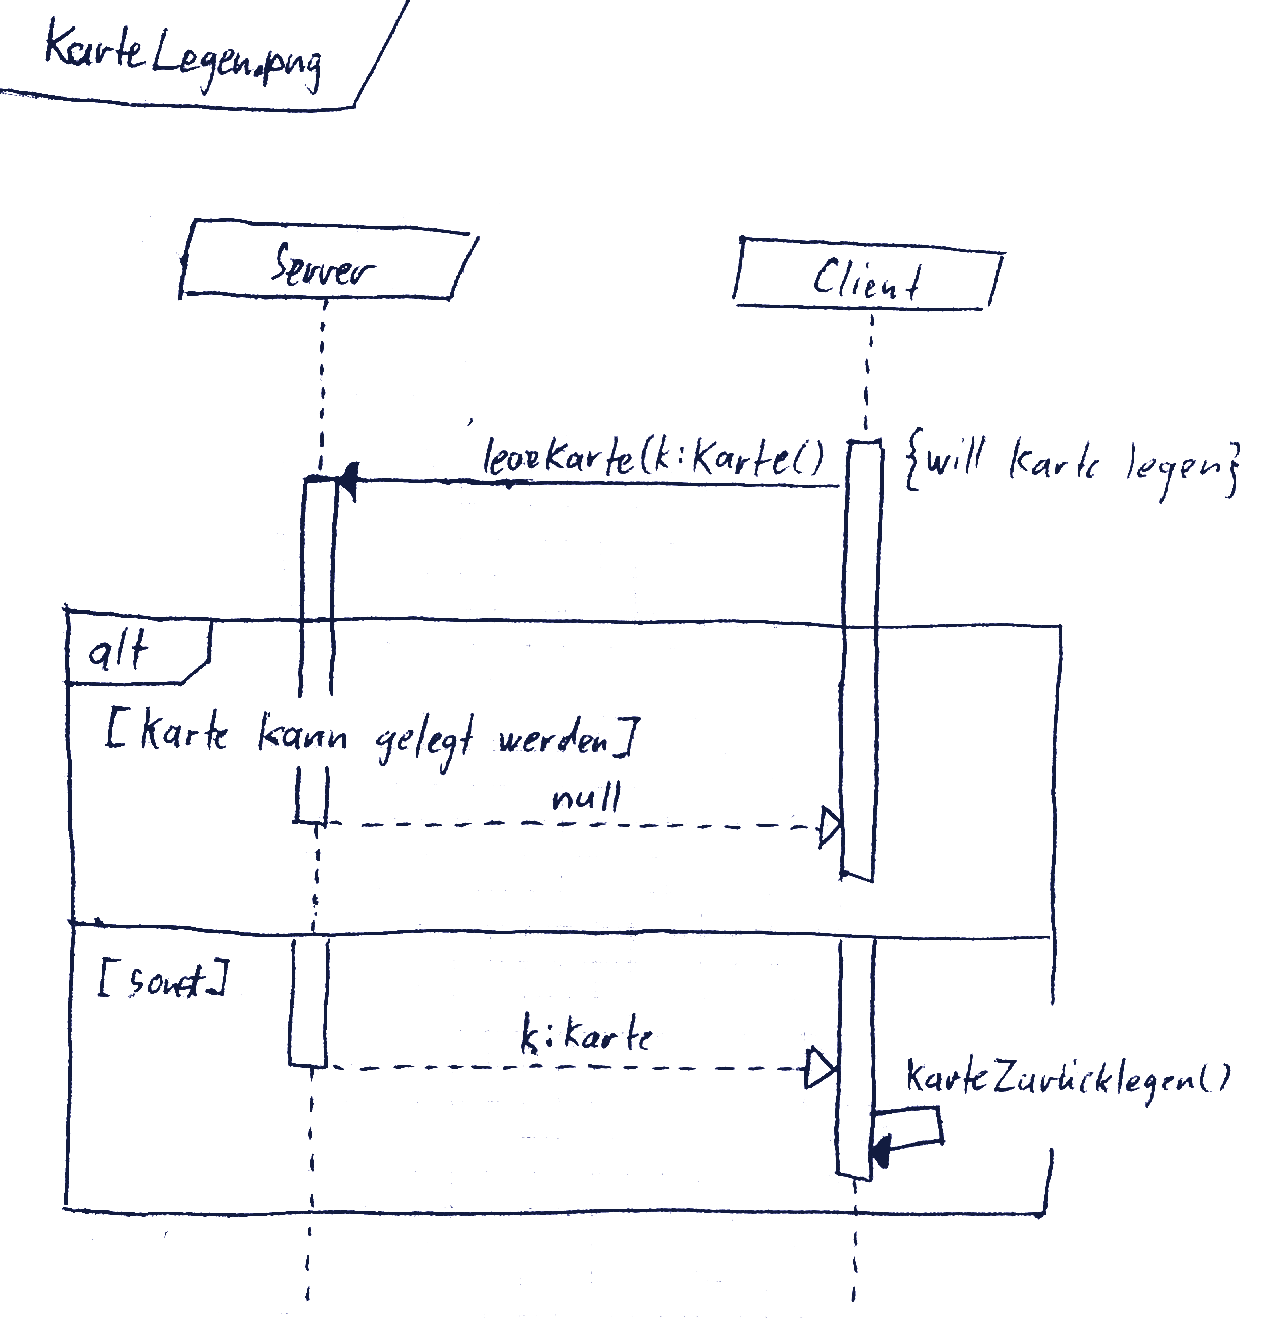 KarteLegen.png
Server
Client
legeKarte(k:Karte()
{will Karte legen}
alt
[Karte kann gelegt werden]
null
[sonst]
k:Karte
KarteZurücklegen()